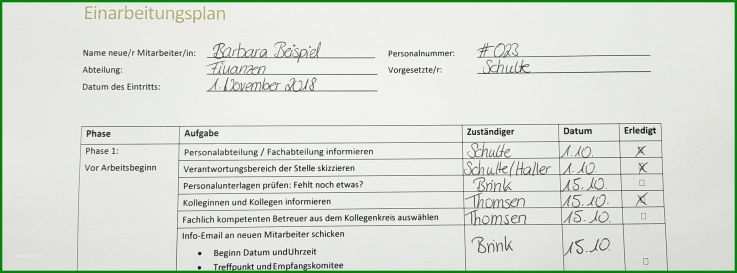 Einarbeitungsplan
Name neue/r Mitarbeiter/in: Barbara Beispiel Personalnummer: #023
Abteilung: Finanzen Vorgesetzte/r: Schulte
Datum des Eintritts: 1. November 2018
Phase Aufgabe Zuständiger Datum Erledigt
Phase 1: Personalabteilung / Fachabteilung informieren Schulte 1.10. ☒
Vor Arbeitsbeginn Verantwortungsbereich der Stelle skizzieren Schulte/Haller 1.10. ☒
Personalunterlagen prüfen: Fehlt noch etwas? Brink 15.10. ☐
Kolleginnen und Kollegen informieren Thomsen 15.10. ☒
Fachlich kompetenten Betreuer aus dem Kollegenkreis auswählen Thomsen 15.10. ☐
Info-Email an neuen Mitarbeiter schicken Brink 15.10. ☐
• Beginn Datum und Uhrzeit
• Treffpunkt und Empfangskomitee